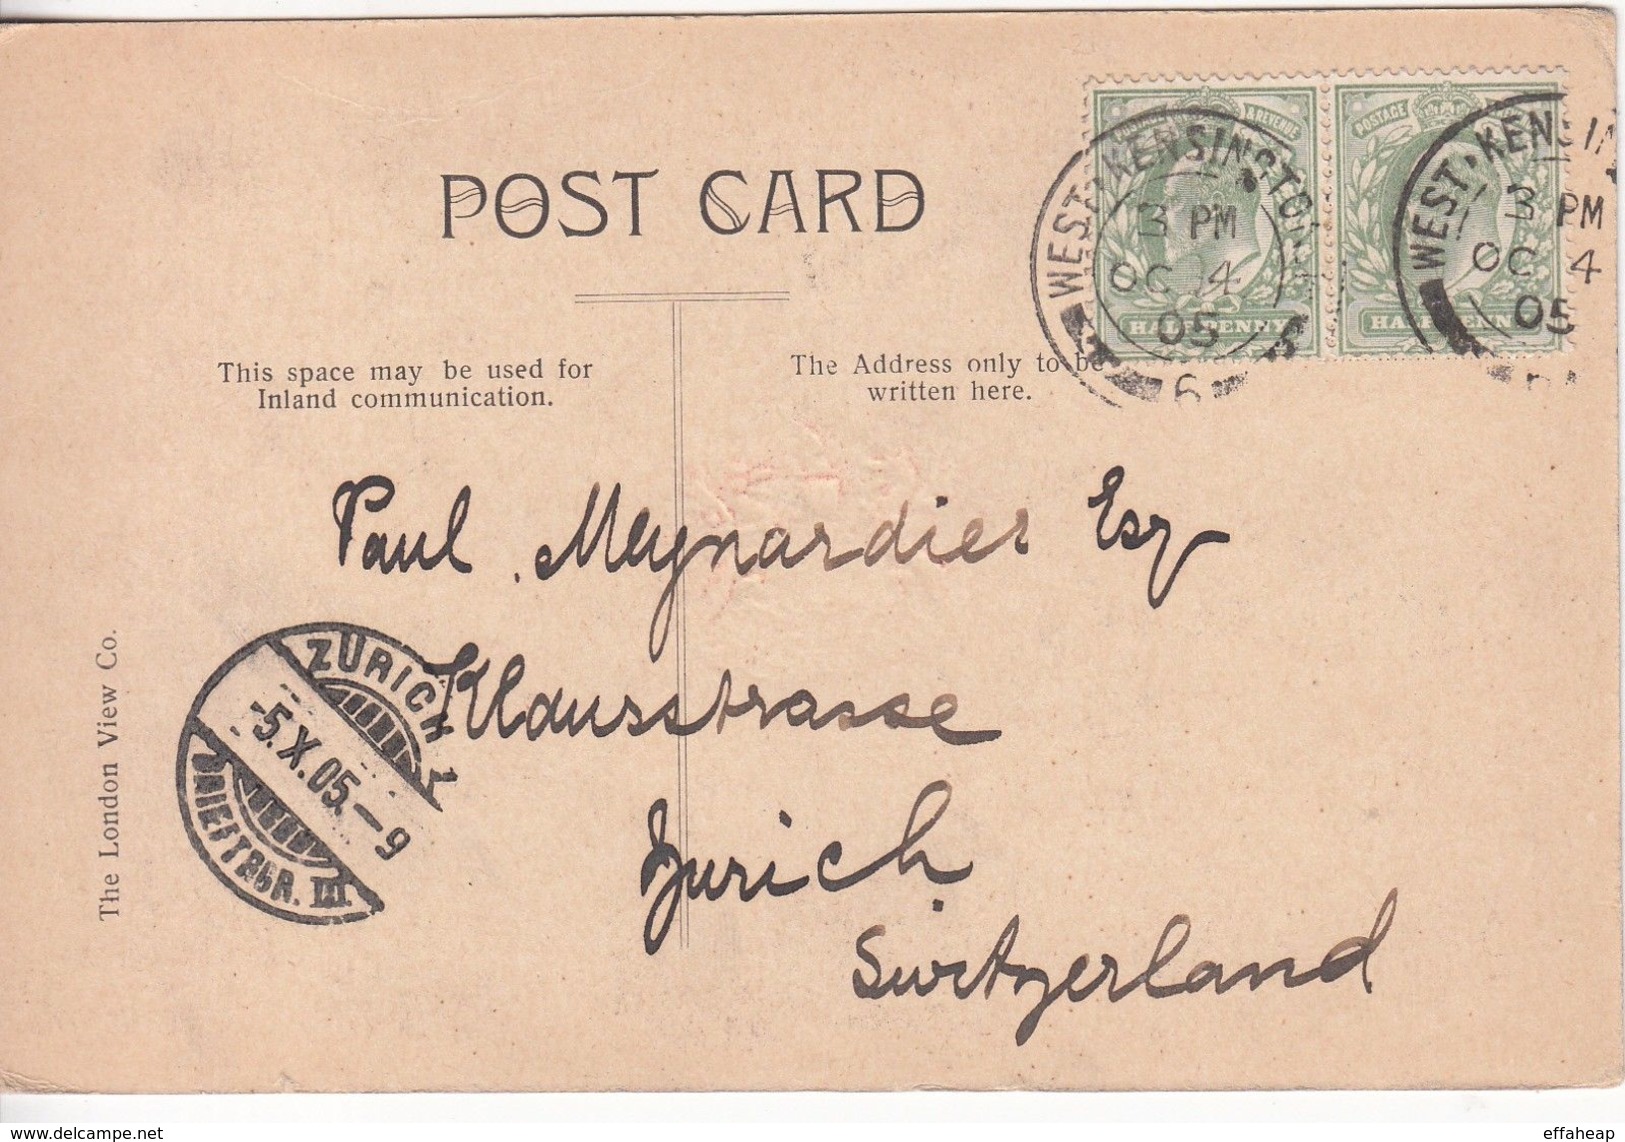 POST CARD
This space may be used for
Inland communication.
The Address only to be
written here.
POSTAGE & REVENUE
HALFPENNY
WEST·KENSINGTON
3 PM
OC 4
05
6
POSTAGE
HALFPENNY
WEST·KENSIN
3 PM
OC 4
05
Paul Meynardier Esq
Klausstrasse
Zurich
Switzerland
ZÜRICH 1
-5.X.05.-9
BRIEFTRGR. III.
The London View Co.
www.delcampe.net
effaheap